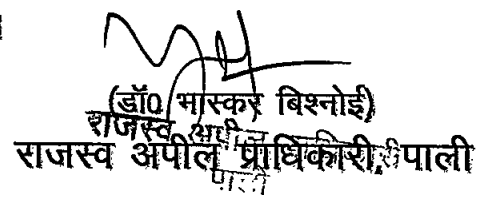 (डॉ0 भास्कर बिश्नोई)
राजस्व अपील
राजस्व अपील प्राधिकारी, पाली
पाली